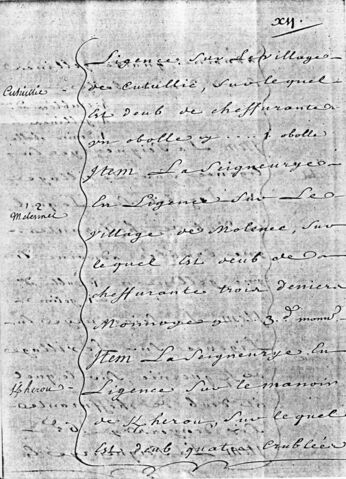 XII.
Ligence sur le village
de Cutullic, sur lequel
Est deub de cheffurante
un obolle cy .... 1 obolle
Item La Seigneurye
En Ligence sur Le
village de Molenec, sur
lequel Est deub de
cheffurante trois deniers
Monnoye cy 3. d. monn.
Item La Seigneurye En
Kherou Ligence sur le manoir
de Kherou, sur lequel
Est deub quatre